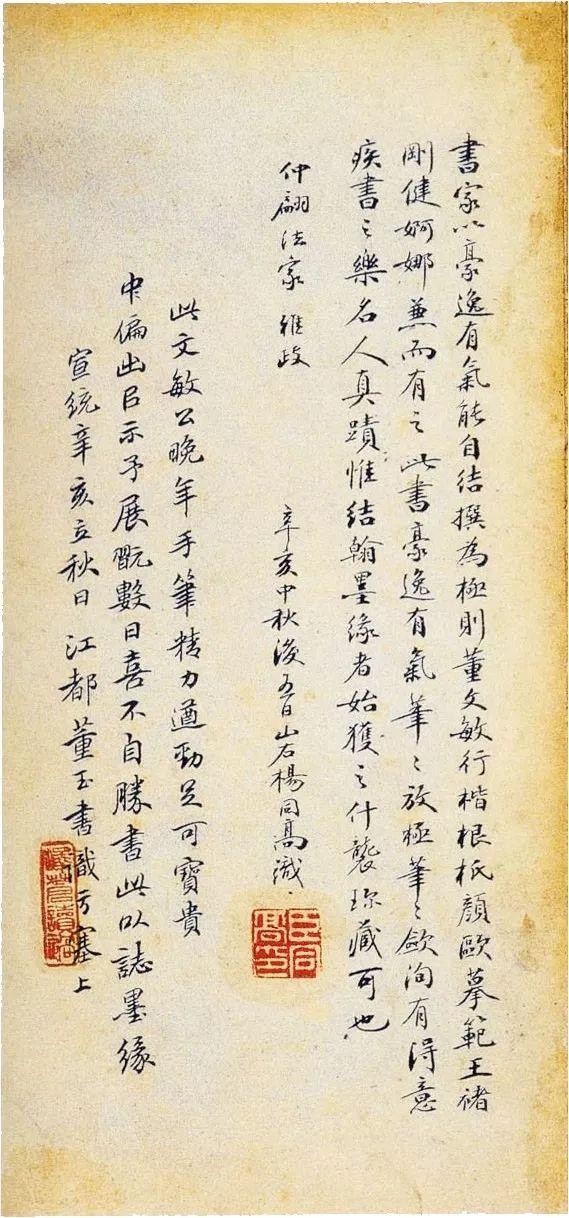 書家以豪逸有氣能自結撰為極則董文敏行楷根柢顏歐摹範王褚
剛健婀娜兼而有之此書豪逸有氣筆〻放極筆〻歛洵有得意
疾書之樂名人真蹟惟結翰墨緣者始獲之什襲珍藏可也
仲翩法家雅政
辛亥中秋後五日山右楊同高識
此文敏公晚年手筆精力遒勁足可寶貴
中偏出以示予展翫數日喜不自勝書此以誌墨緣
宣統辛亥立秋日 江都董玉書識於塞上